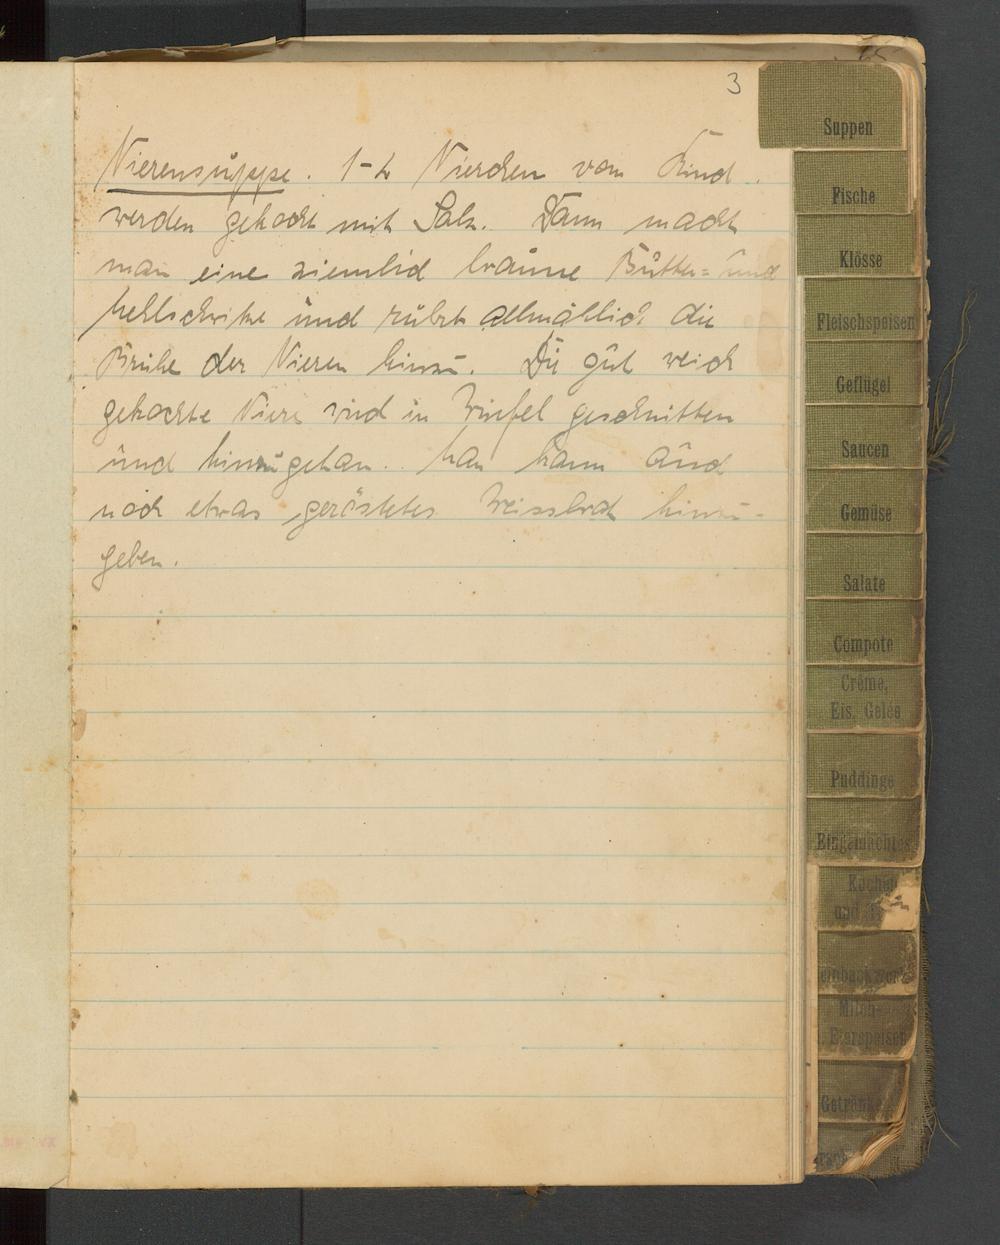 3
Nierensuppe. 1-2 Nierchen vom Rind
werden gekocht mit Salz. Dann macht
man eine ziemlich braune Butter= und
Mehlschwitze und rührt allmählich die
Brühe der Nieren hinzu. Die gut weich
gekochte Niere wird in Würfel geschnitten
und hinzugetan. Man kann auch
noch etwas geröstetes Weissbrot hinzu-
geben.
Suppen
Fische
Klösse
Fleischspeisen
Geflügel
Saucen
Gemüse
Salate
Compote
Crême,
Eis, Gelée
Puddinge
Eingemachtes
Kuchen
und
Milch-
Eierspeisen
Getränke